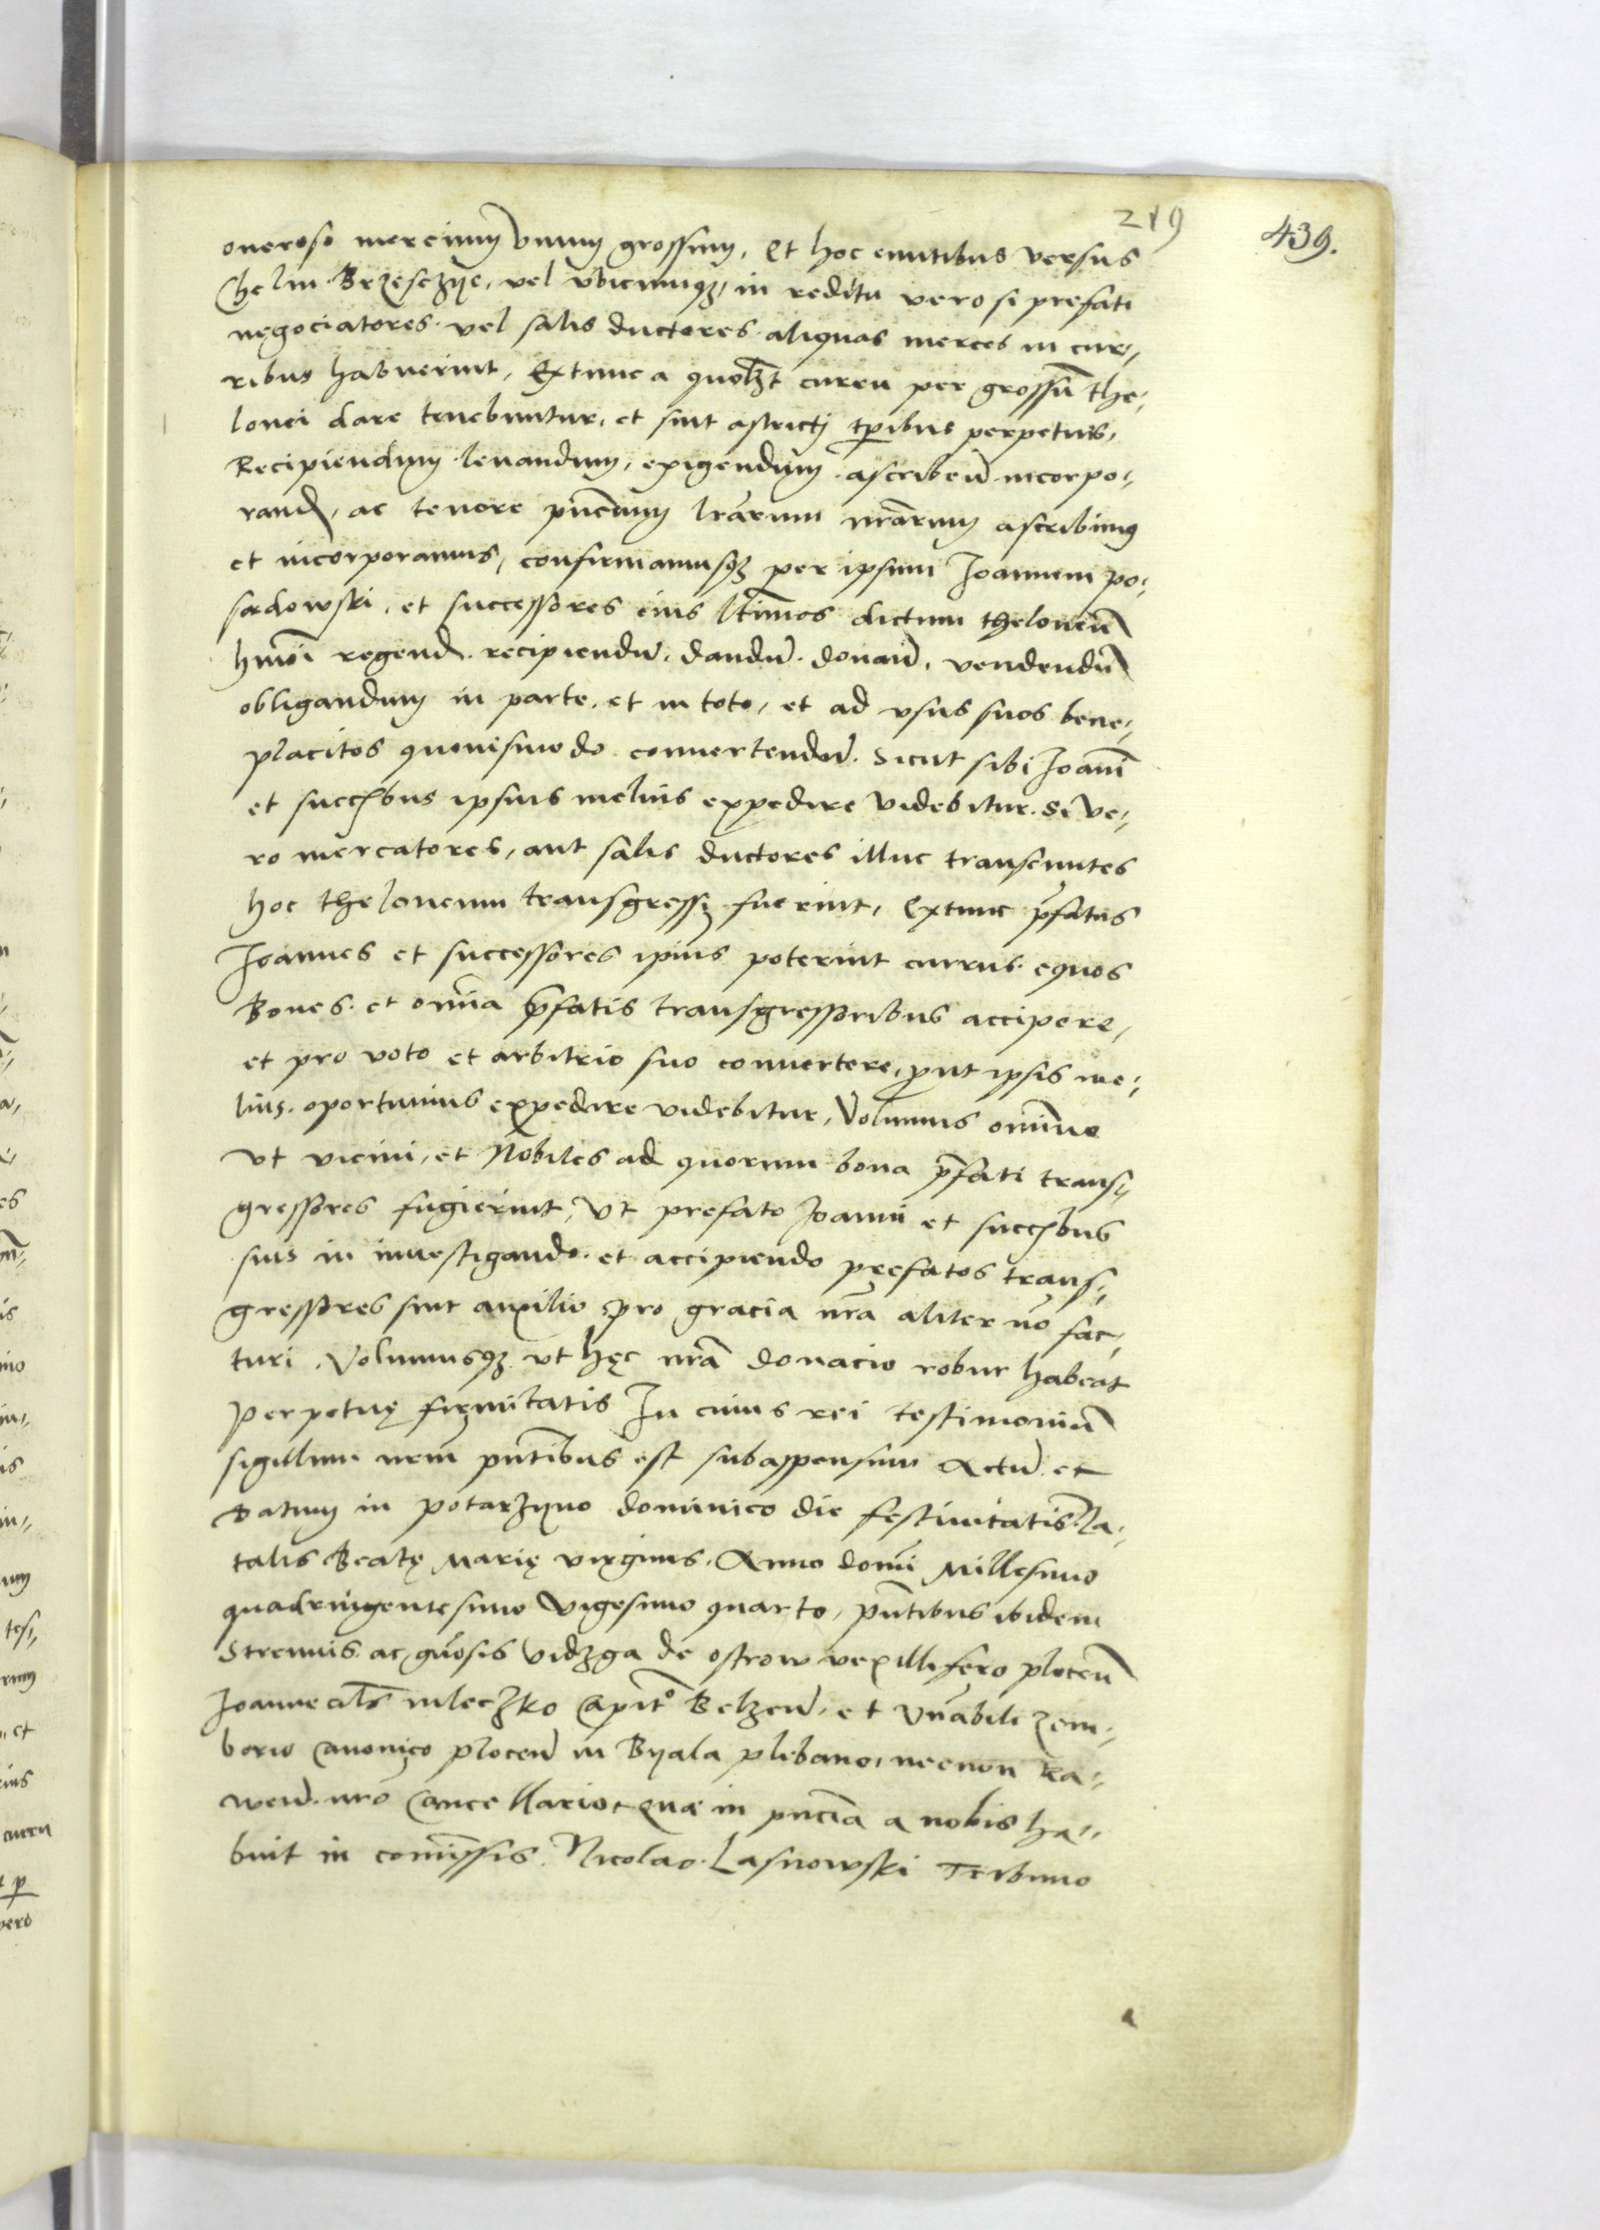 219 439.
oneroso mercimm vnum grossum, Et hoc euntibus versus
Chelm Brzesczye, vel vbicunqȝ, in reditu vero si prefati
negociatores vel salis ductores aliquas merces in cur-
ribus habuerint, Extunc a quolȝt curru per grossū the-
lonei dare tenebuntur, et sint astricti tp̄ribus perpetuis,
Recipiendum leuandum, exigendum ascribeñ incorpo-
rand, ac tenore pn̄cium lrārum nrārum ascribimus
et incorporamus, confirmamusqȝ per ipsum Joannem po-
sadowski, et successores eius ltīmos dictum theloneū
hmōi regend. recipiendū, dandū donañ, vendendū
obligandum in parte, et in toto, et ad vsus suos bene-
placitos quouismodo conuertendū. Sicut sibi Joanī
et succ̄ībus ipsius melius expedire videbitur. Si ve-
ro mercatores, aut salis ductores illuc transeuntes
hoc theloneum transgressi fuerint, Extunc p̄fatus
Joannes et successores ipius poterint currus equos
Boues et om̄ia p̄fatis transgressoribus accipere,
et pro voto et arbitrio suo conuertere, put ipsis me-
lius oportunius expedire videbitur, Volumus om̄ino
vt vicini, et Nobiles ad quorum bona p̄fati trans-
gressores fugierint, vt prefato Joanni et succ̄ībus
suis in inuestigando et accipiendo prefatos trans-
gressores sint auxilio, pro gracia nrā aliter nō fac-
turi. Volumusqȝ vt hęc nrā donacio robur habeat
perpetuę firmitatis In cuius rei testimoniū
sigillum nrm̄ pn̄tibus est subappensum Actū et
Datum in potarzyno dominico die festiuitatis Na-
talis Beatę Marię virginis. Anno domī Millesimo
quadringentesimo Vigesimo quarto, pn̄tibus ibidem
Strenuis ac gn̄osis Vidzga de ostrow vexillifero ploceñ
Joanne als̄ mleczko Capit° Belzeñ, et Vn̄abili zem-
borio Canonico ploceñ in Byala plebano, necnon Ra-
weñ nrō Cancellario quæ in pn̄cia a nobis ha-
buit in com̄issis. Nicolao Lasnowski Tribuno